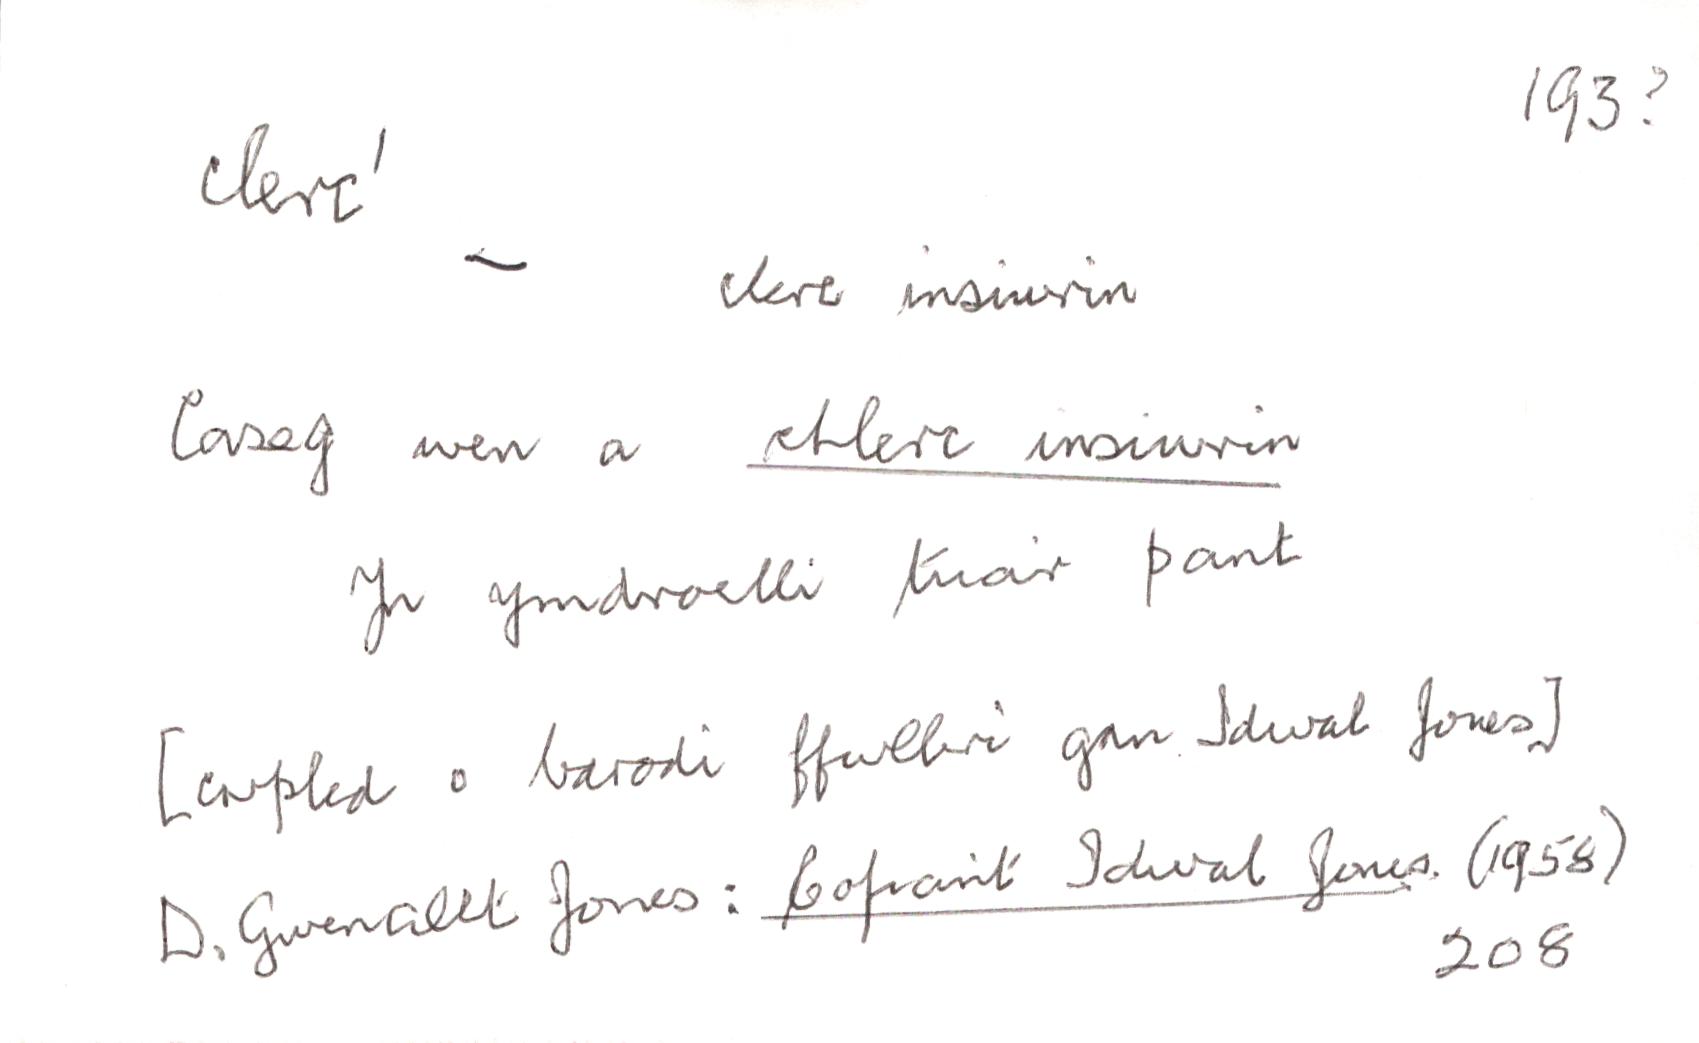 193?
clerc¹
~ clerc insiwrin
Caseg wen a chlerc insiwrin
Yn ymdroelli tua'r pant
[cwpled o barodi ffwlbri gan Idwal Jones]
D. Gwenallt Jones: Cofiant Idwal Jones. (1958)
208